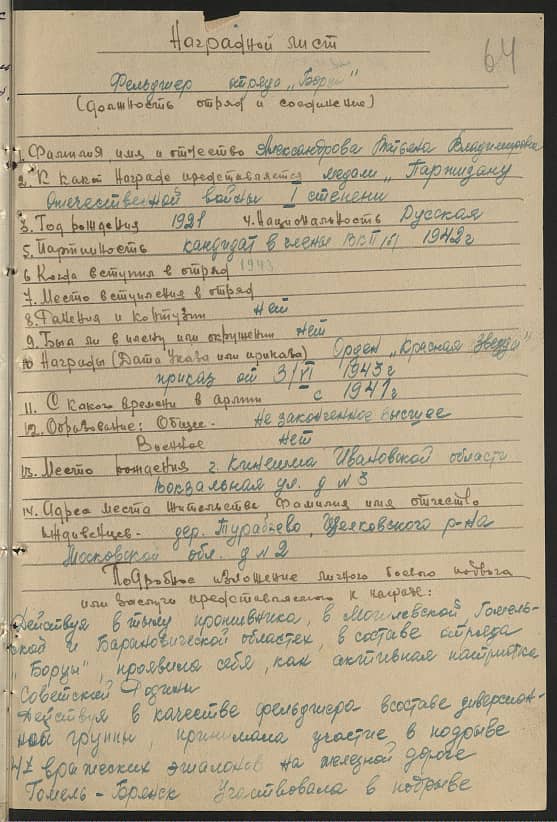 64
Наградной лист
Фельдшер отряда „Борцы"
(должность отряд и соединение)
1. Фамилия, имя и отчество Александрова Татьяна Владимировна
2. К какой награде представляется медали „Партизану
отечественной войны I степени
3. Год рождения 1921 4. Национальность Русская
5. Партийность кандидат в члены ВКП(б) 1942г
6 Когда вступил в отряд 1943
7. Место вступления в отряд
8. Ранения и контузии нет
9. Был ли в плену или окружении нет
10 Награды (Дата Указа или приказа) Орден „Красная Звезда"
приказ от 3/VI 1943г
11. С какого времени в армии с 1941г
12. Образование: Общее - Не законченное высшее
Военное нет
13. Место рождения г. Кинешма Ивановской области
Вокзальная ул. д N 3
14. Адрес места жительства, фамилия имя отчество
иждивенцев - дер. , р-на
Московской обл. д N 2
Подробное изложение личного боевого подвига
или заслуги представляемого к награде:
Действуя в тылу противника, в Могилевской, Гомель-
ской и Барановической областех, в составе отряда
„Борцы", проявила себя, как активная патриотка
Советской Родины
Действуя в качестве фельдшера в составе диверсион-
ной группы, принимала участие в подрыве
47 вражеских эшалонов на железной дороге
Гомель-Брянск Участвовала в подрыве